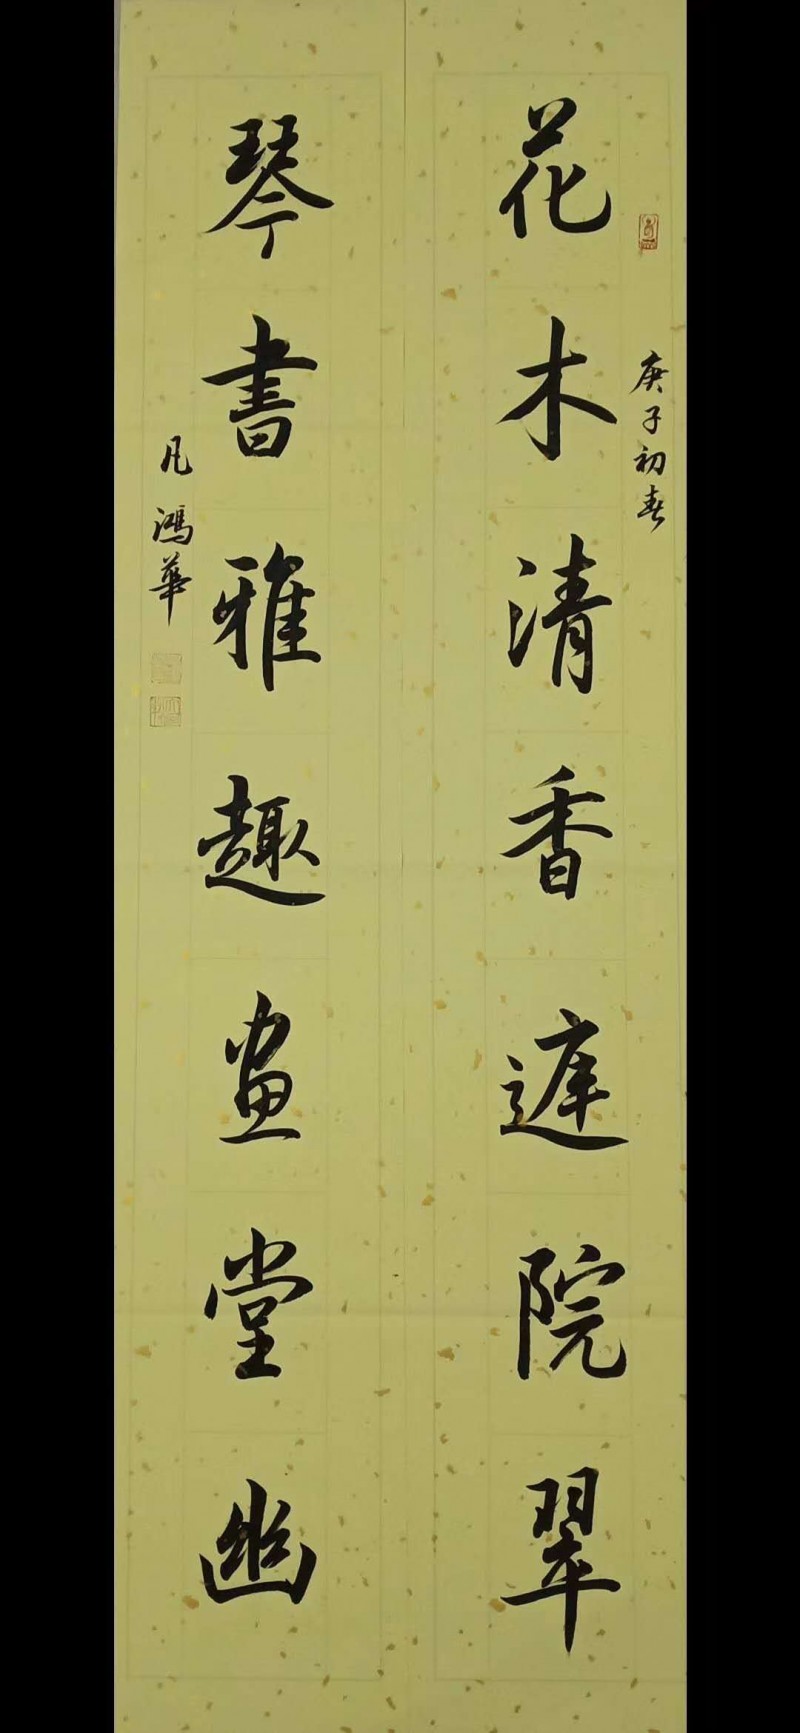 庚子初春
花木清香庭院翠
琴書雅趣畫堂幽
凡鴻華